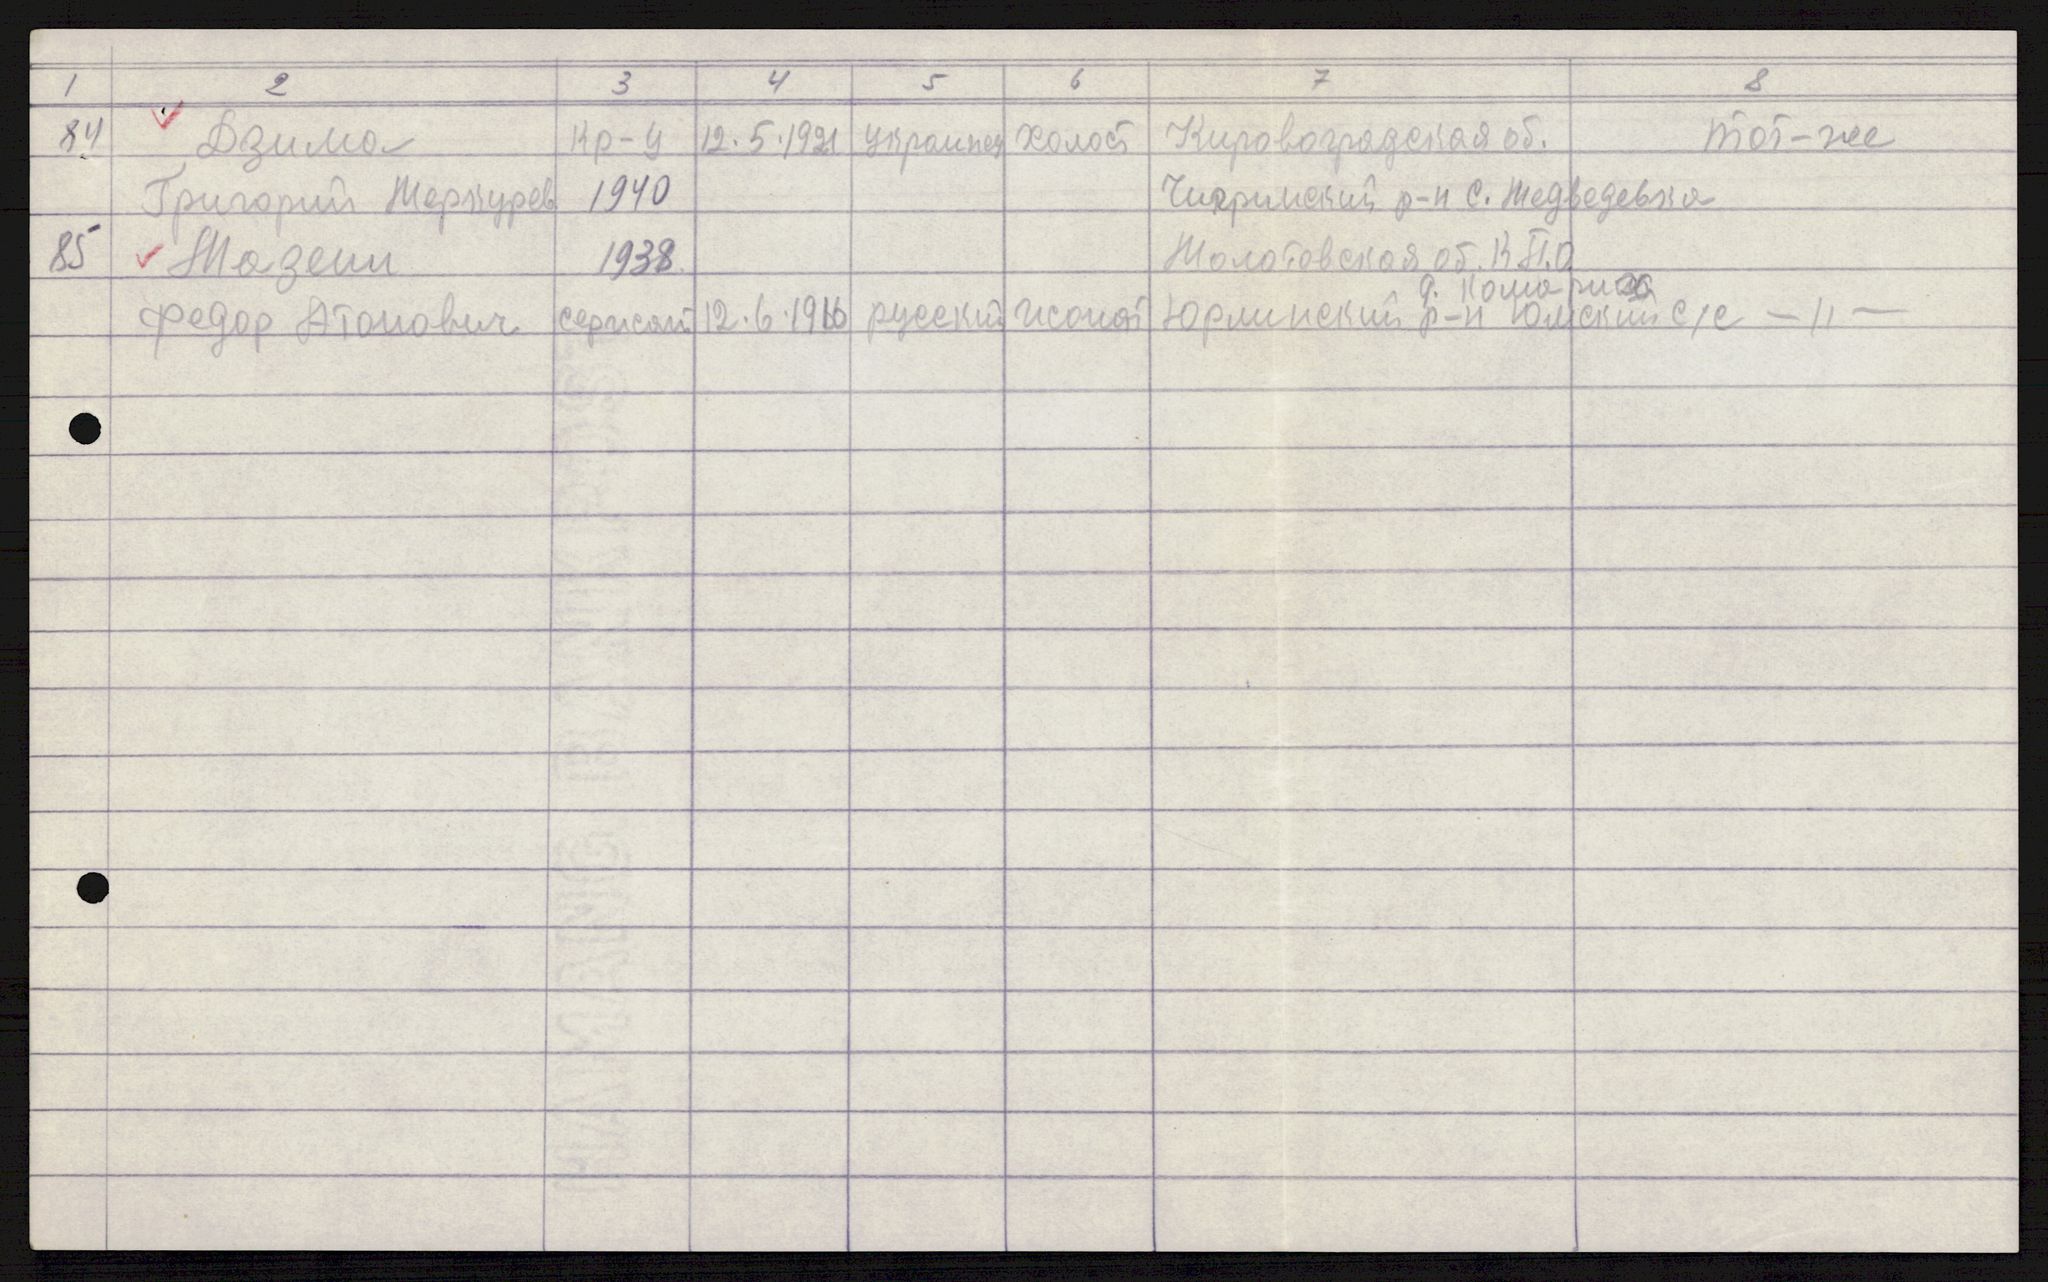 1 2 3 4 5 6 7 8
84 Дзима Кр-ц 12.5.1921 украинец холост Кировоградская об. тот-же
Григорий Меркурев 1940 Чигримский р-н с. Медведевка
85 Мазеин 1938 Молотовская об. К.П.О
д. Комариха
федор Атонович сержант 12.6.1916 русский женат Юрлинский р-н Юмский с/с — 11 —